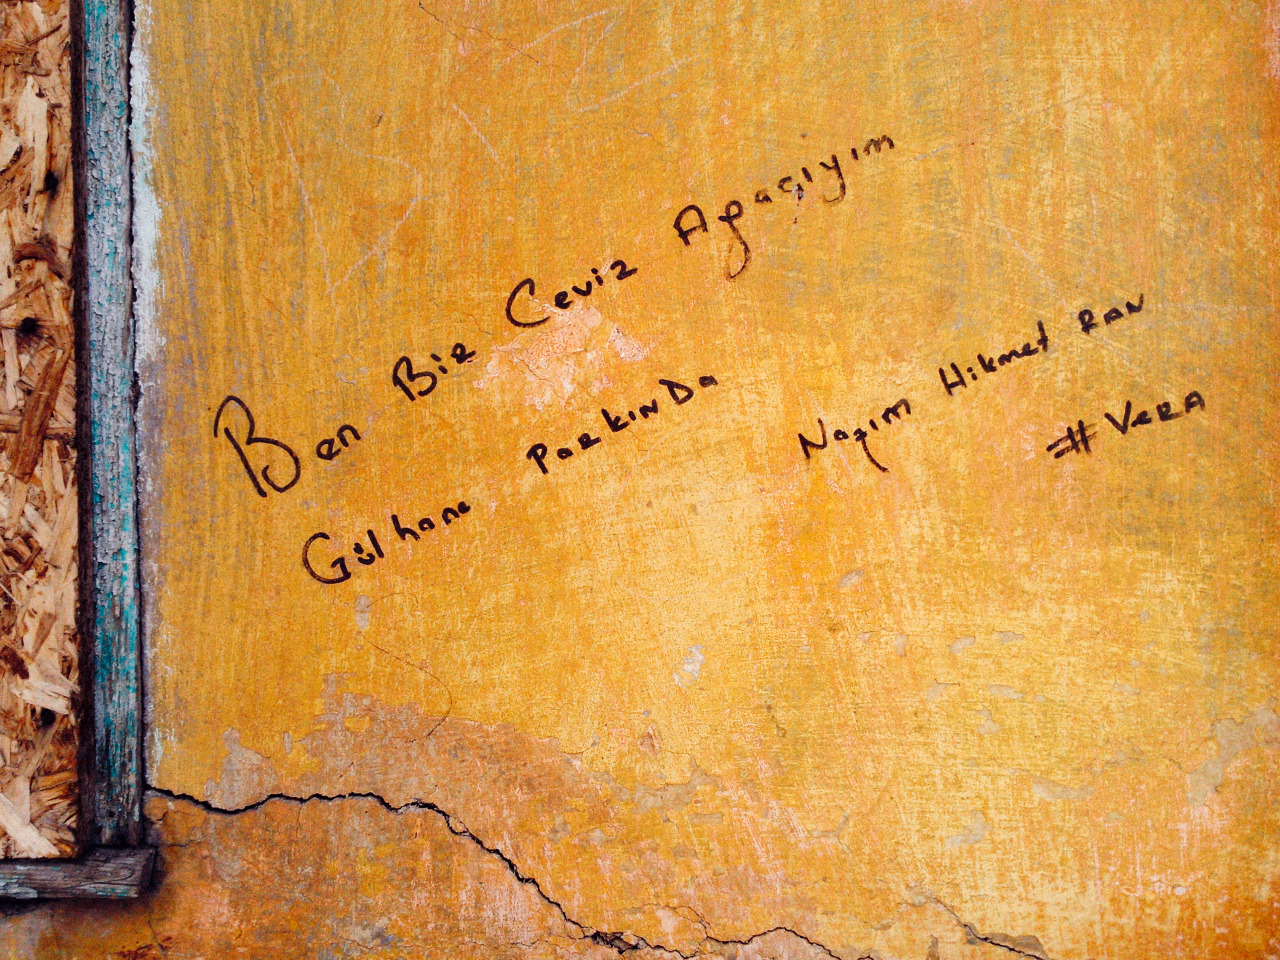 Ben Biz Ceviz Agaçıyım
Gülhane ParkınDa
Nazım Hikmet RAN
# VeRA